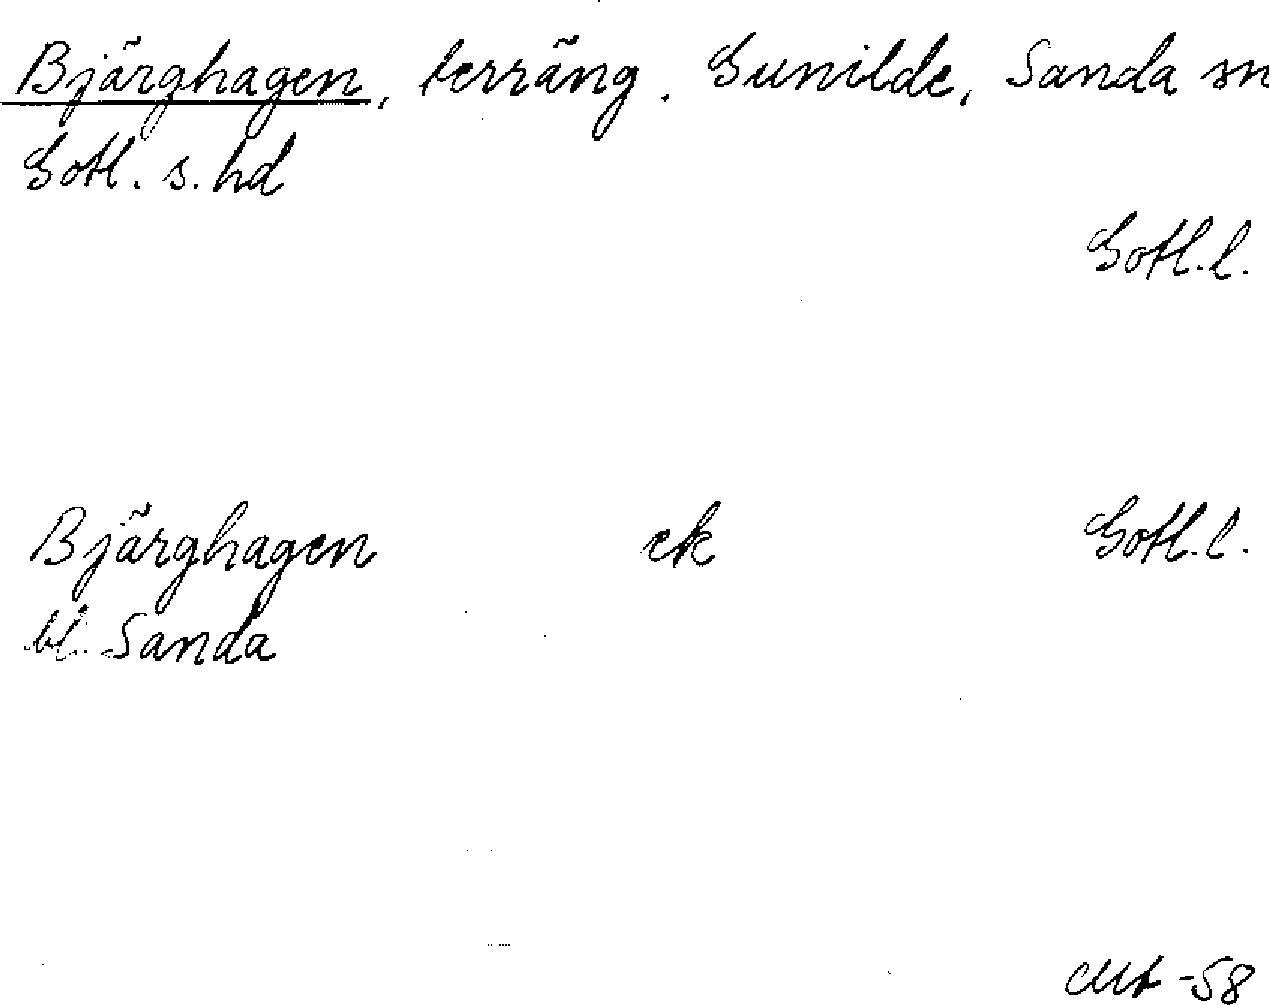 Bjärghagen, terräng. Gunilde, Sanda sn
Gotl. s. hd
Gotl. l.
Bjärghagen ek Gotl. l.
bl. Sanda
-58